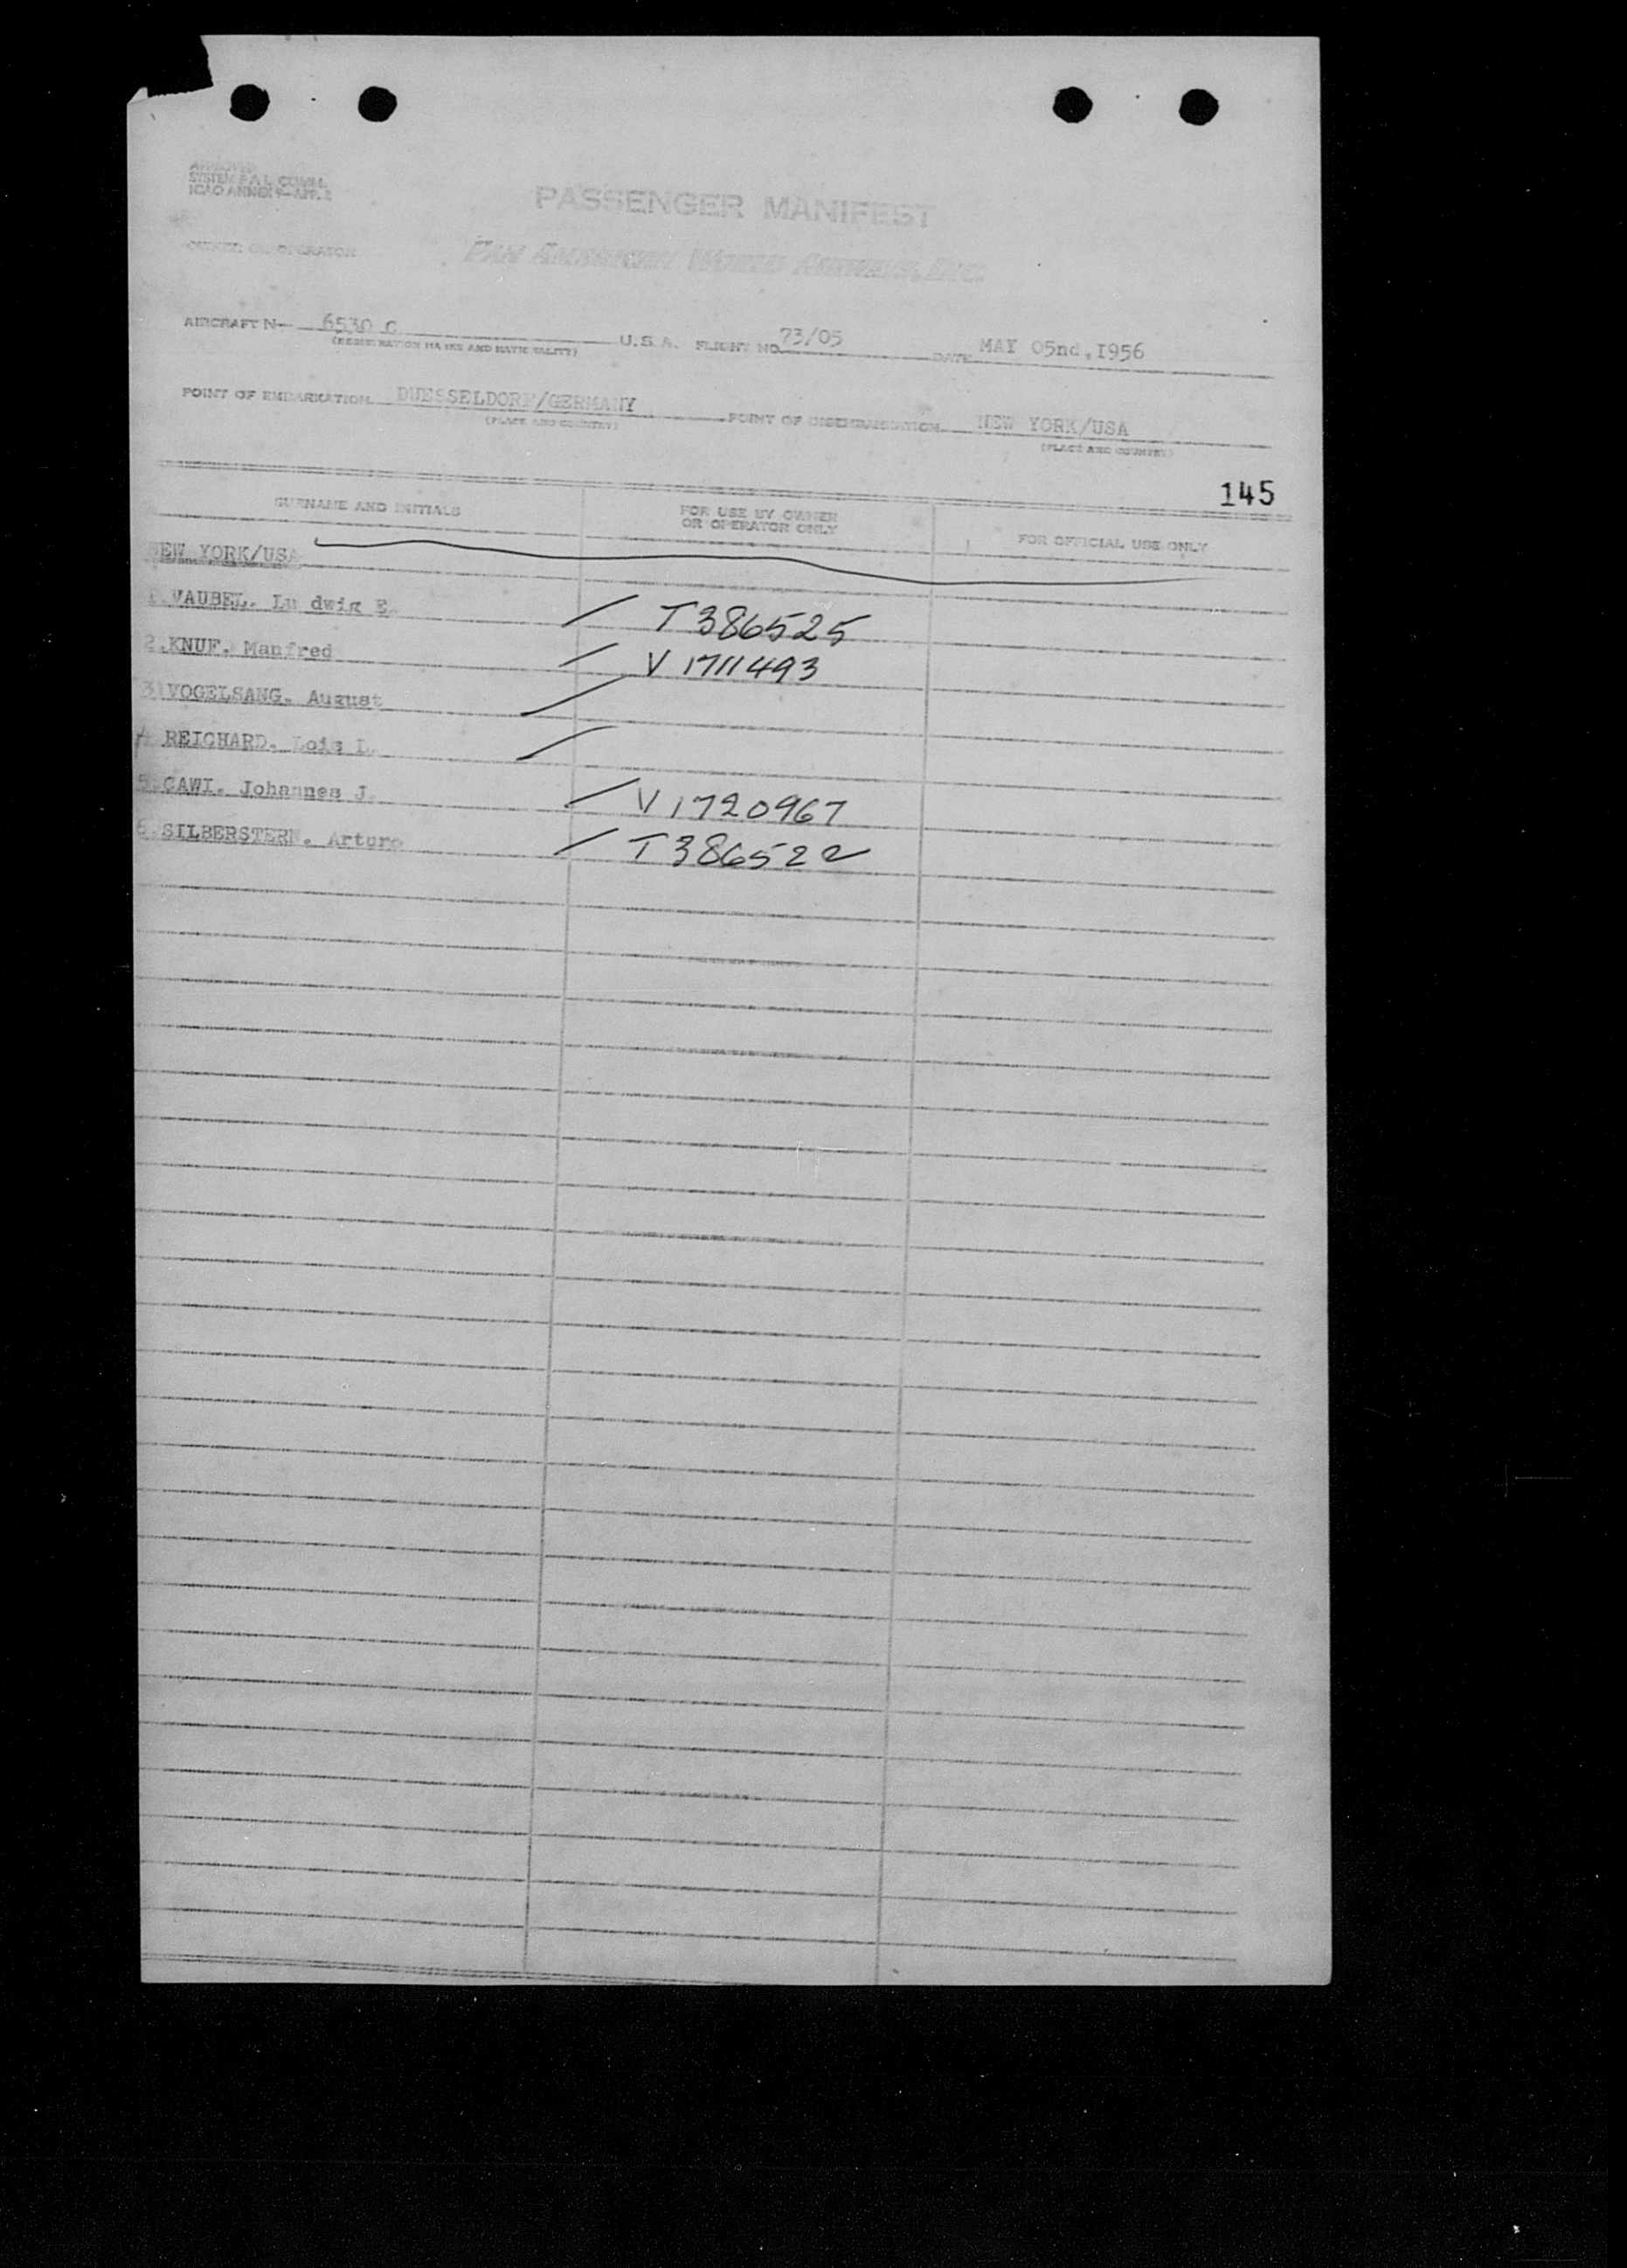 APPROVED
SYSTEM F.A.L. COMM.
ICAO ANNEX 9—APP. 2
PASSENGER MANIFEST
OWNER OR OPERATOR PAN AMERICAN WORLD AIRWAYS, INC.
AIRCRAFT N— 6530 C U.S.A. FLIGHT NO. 73/05 DATE MAY 05nd,I956
(REGISTRATION MARKS AND NATIONALITY)
POINT OF EMBARKATION DUESSELDORF/GERMANY POINT OF DISEMBARKATION NEW YORK/USA
(PLACE AND COUNTRY) (PLACE AND COUNTRY)
145
SURNAME AND INITIALS FOR USE BY OWNER OR OPERATOR ONLY FOR OFFICIAL USE ONLY
NEW YORK/USA
1.VAUBEL. Lu dwig E. T386525
2.KNUF. Manfred V 1711493
3.VOGELSANG. August
4. REICHARD. Lois L.
5.GAWI. Johannes J. V1720967
6.SILBERSTERN. Arturo T386522